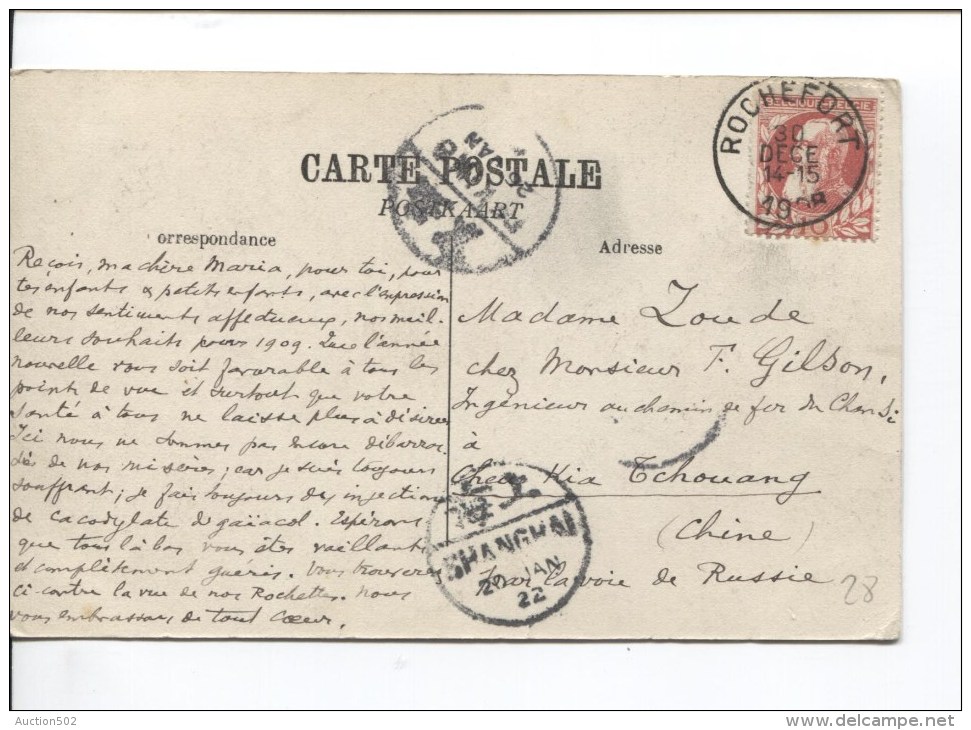 CARTE POSTALE
POSTKAART
orrespondance
Adresse
BELGIQUE-BELGIË
10
ROCHEFORT
30
DECE
14-15
1908
Reçois, ma chère Maria, pour toi, pour
tes enfants & petits enfants, avec l'expression
de nos sentiments affectueux, nos meil-
leurs souhaits pour 1909. Que l'année
nouvelle vous soit favorable à tous les
points de vue et surtout que votre
santé à tous ne laisse plus à désirer
Ici nous ne sommes pas encore débarras-
sés de nos misères; car je suis toujours
souffrant; je fais toujours des injections
de cacodylate de gaïacol. Espérons
que tous là bas vous êtes vaillants
et complètement guéris. Vous trouverez
ci-contre la vue de nos Rochettes. Nous
vous embrassons de tout cœur.
Madame Zoude
chez Monsieur F. Gilson,
Ingénieur au chemin de fer du Chansi
à
Cheu Kia Tchouang
(Chine)
par la voie de Russie
SHANGHAI
20 JAN
22
28
Auction502
www.delcampe.net